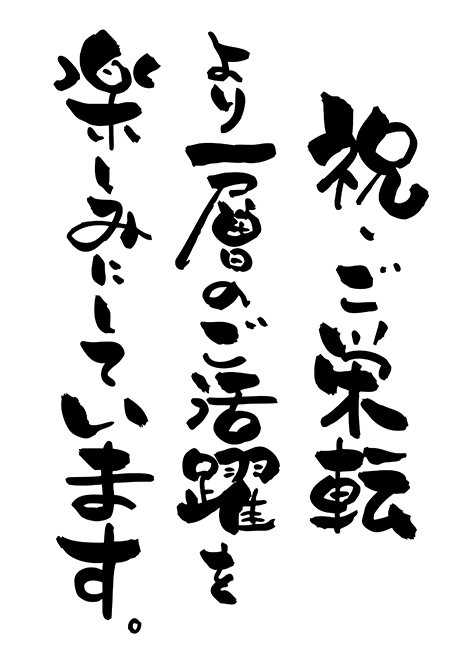 祝、ご栄転
より一層のご活躍を
楽しみにしています。